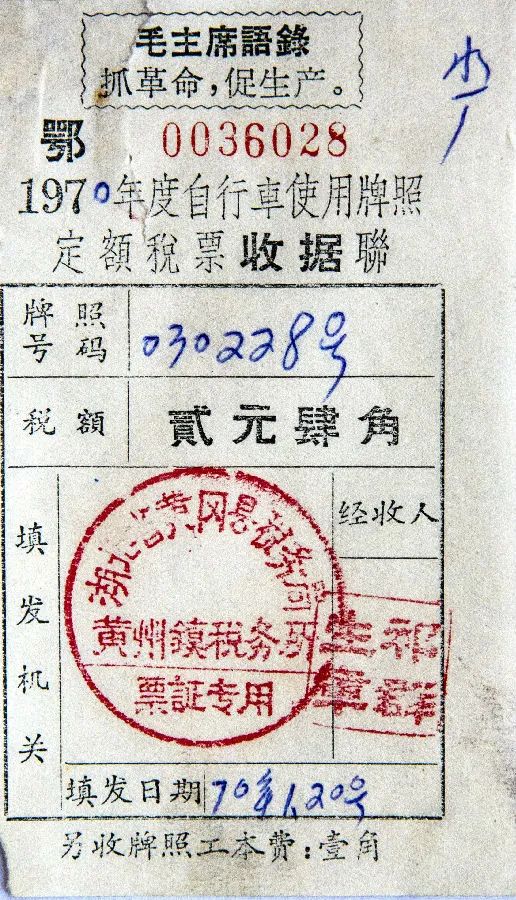 毛主席語錄
抓革命,促生产。
鄂 0036028
1970年度自行車使用牌照
定額税票收据聯
牌照号码 030228号
税額 貳元肆角
填发机关
经收人
湖北省黄冈县税务局
黄州鎮税务所
票証专用
填发日期 70年1.20号
另收牌照工本费:壹角